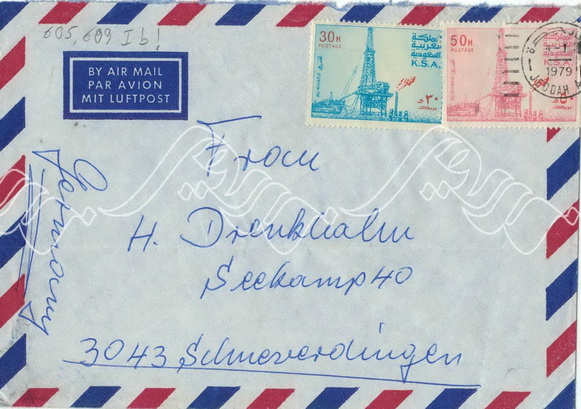 605,609 I b!
BY AIR MAIL
PAR AVION
MIT LUFTPOST
30H
POSTAGE
المملكة
العربية
السعودية
K.S.A.
AL-KHAFJI
٣٠
50H
POSTAGE
K.S.A.
1979
JEDDAH
Frau
H. Drenkhalm
Seekamp 40
3043 Schneverdingen
Germany